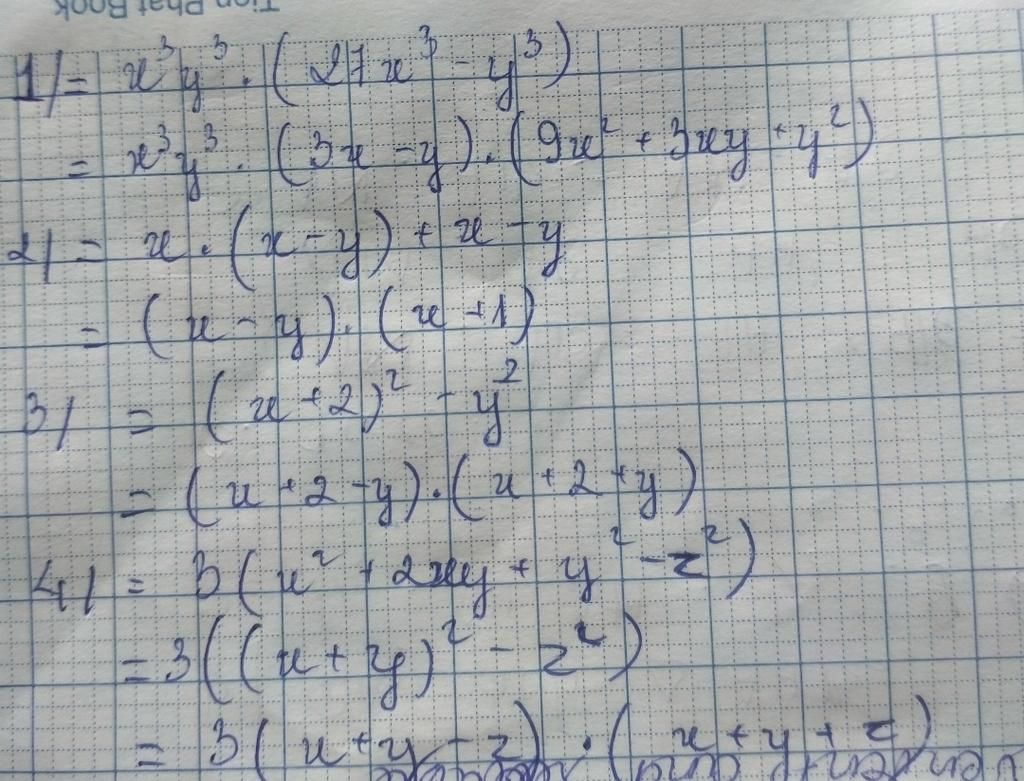 Tien Phat Book
1/ = x³y³ . (27x³ - y³)
= x³y³ . (3x - y) . (9x² + 3xy + y²)
2/ = x . (x - y) + x - y
= (x - y) . (x + 1)
3/ = (x + 2)² - y²
= (x + 2 - y) . (x + 2 + y)
4/ = 3(x² + 2xy + y² - z²)
= 3((x + y)² - z²)
= 3(x + y - z) . (x + y + z)